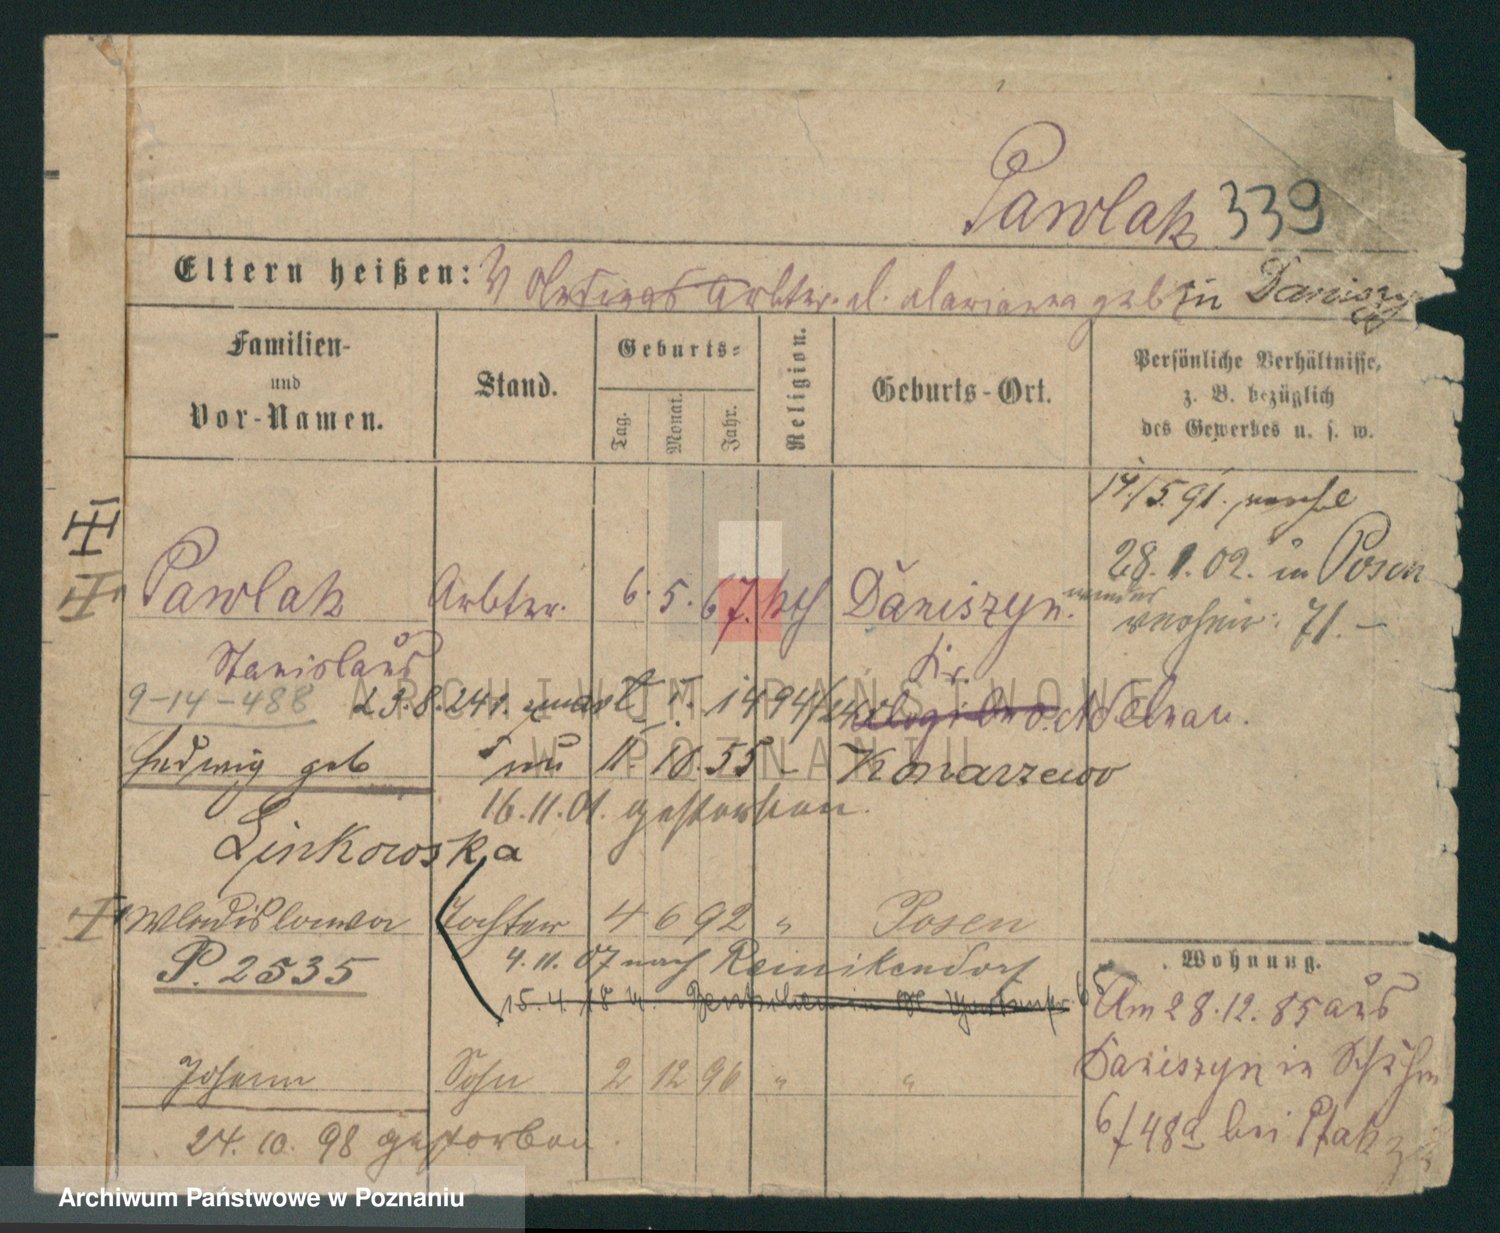 Pawlak 339
Eltern heißen: Arbtr. u. Marianna geb in Daniszyn
Familien-
und
Vor-Namen.
Stand.
Geburts-
Tag.
Monat.
Jahr.
Religion.
Geburts-Ort.
Persönliche Verhältnisse,
z. B. bezüglich
des Gewerbes u. s. w.
14./5.91.
28.1.02. in Posen
wieder
verheir: 71. –
Pawlak Arbtr. 6. 5. 67. kth Daniszyn.
Stanislaus Kr.
9-14-488 23.8.241. 1494/ Adelnau.
Hedwig geb 11. 10. 55 – Konarzewo
16.11.01. gestorben.
Linkowska
Wladislawa Tochter 4 6 92 " Posen
P. 2535 4.11.07 nach Reinikendorf
15.4.18
Wohnung.
Am 28.12.85 aus
Daniszyn in Schuhm
6/48a bei Ptak
Johann Sohn 2 12 96 " "
24.10.98 gestorben.
ARCHIWUM PAŃSTWOWE
W POZNANIU
Archiwum Państwowe w Poznaniu